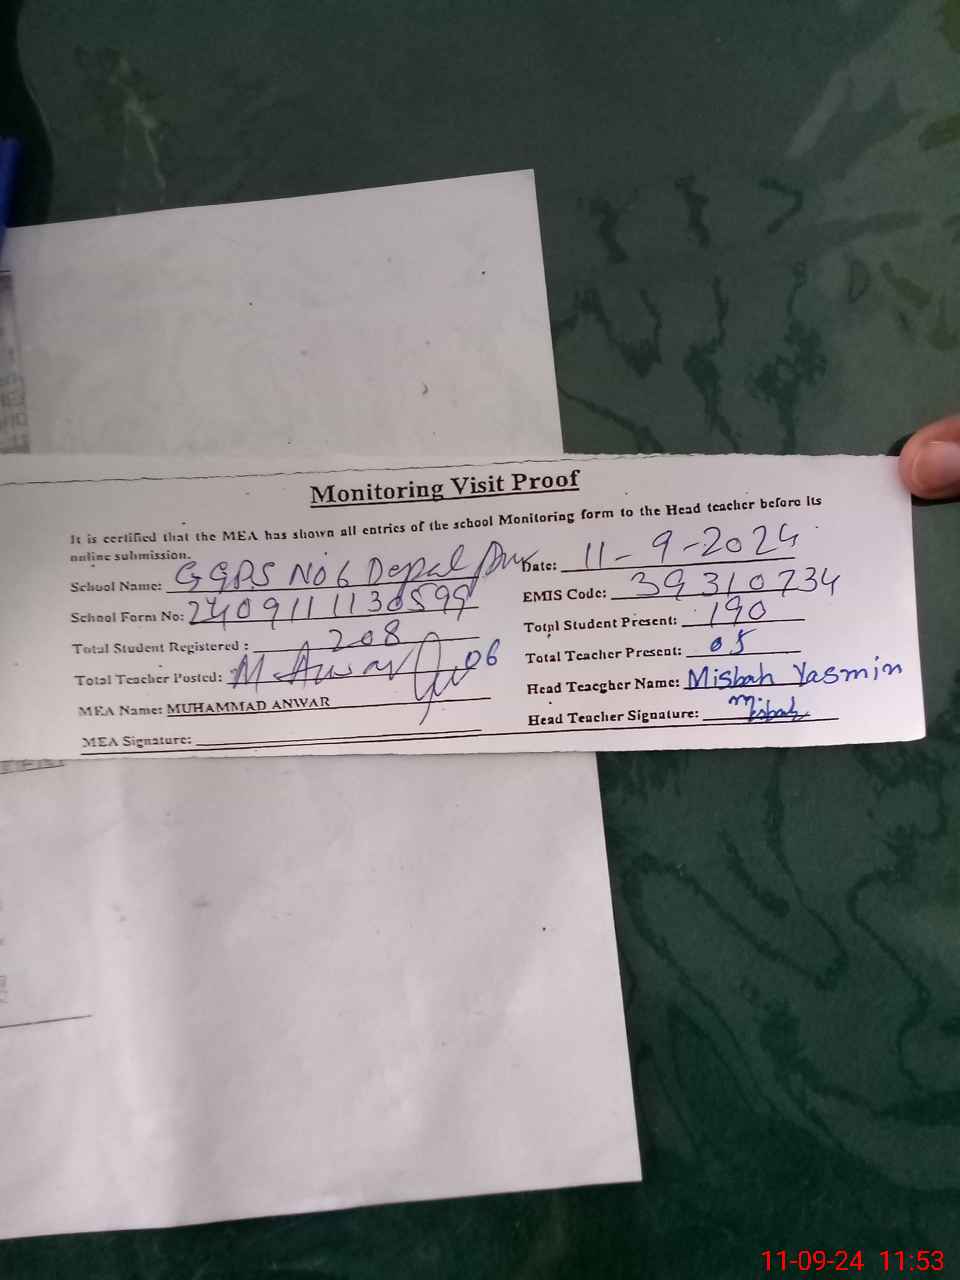 Monitoring Visit Proof
It is certified that the MEA has shown all entries of the school Monitoring form to the Head teacher before its
online submission.
School Name: GGPS No 6 Depalpur Date: 11-9-2024
School Form No: 2409111130599 EMIS Code: 39310734
Total Student Registered : 208 Total Student Present: 190
Total Teacher Posted: M Anwar 06 Total Teacher Present: 05
MEA Name: MUHAMMAD ANWAR Head Teaegher Name: Misbah Yasmin
MEA Signature: Head Teacher Signature: Misbah
11-09-24 11:53